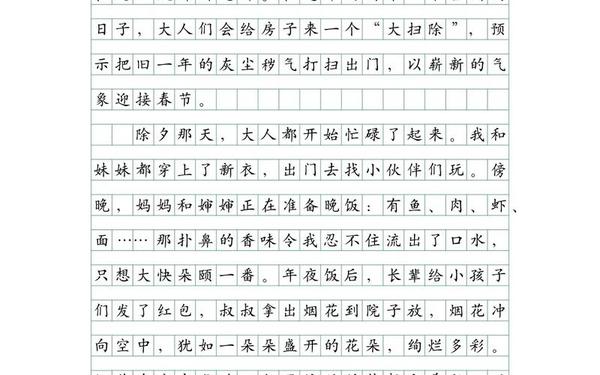 日子，大人们会给房子来一个“大扫除”，预
示把旧一年的灰尘秽气打扫出门，以崭新的气
象迎接春节。
除夕那天，大人都开始忙碌了起来。我和
妹妹都穿上了新衣，出门去找小伙伴们玩。傍
晚，妈妈和婶婶正在准备晚饭：有鱼、肉、虾、
面……那扑鼻的香味令我忍不住流出了口水，
只想大快朵颐一番。年夜饭后，长辈给小孩子
们发了红包，叔叔拿出烟花到院子放，烟花冲
向空中，犹如一朵朵盛开的花朵，绚烂多彩。